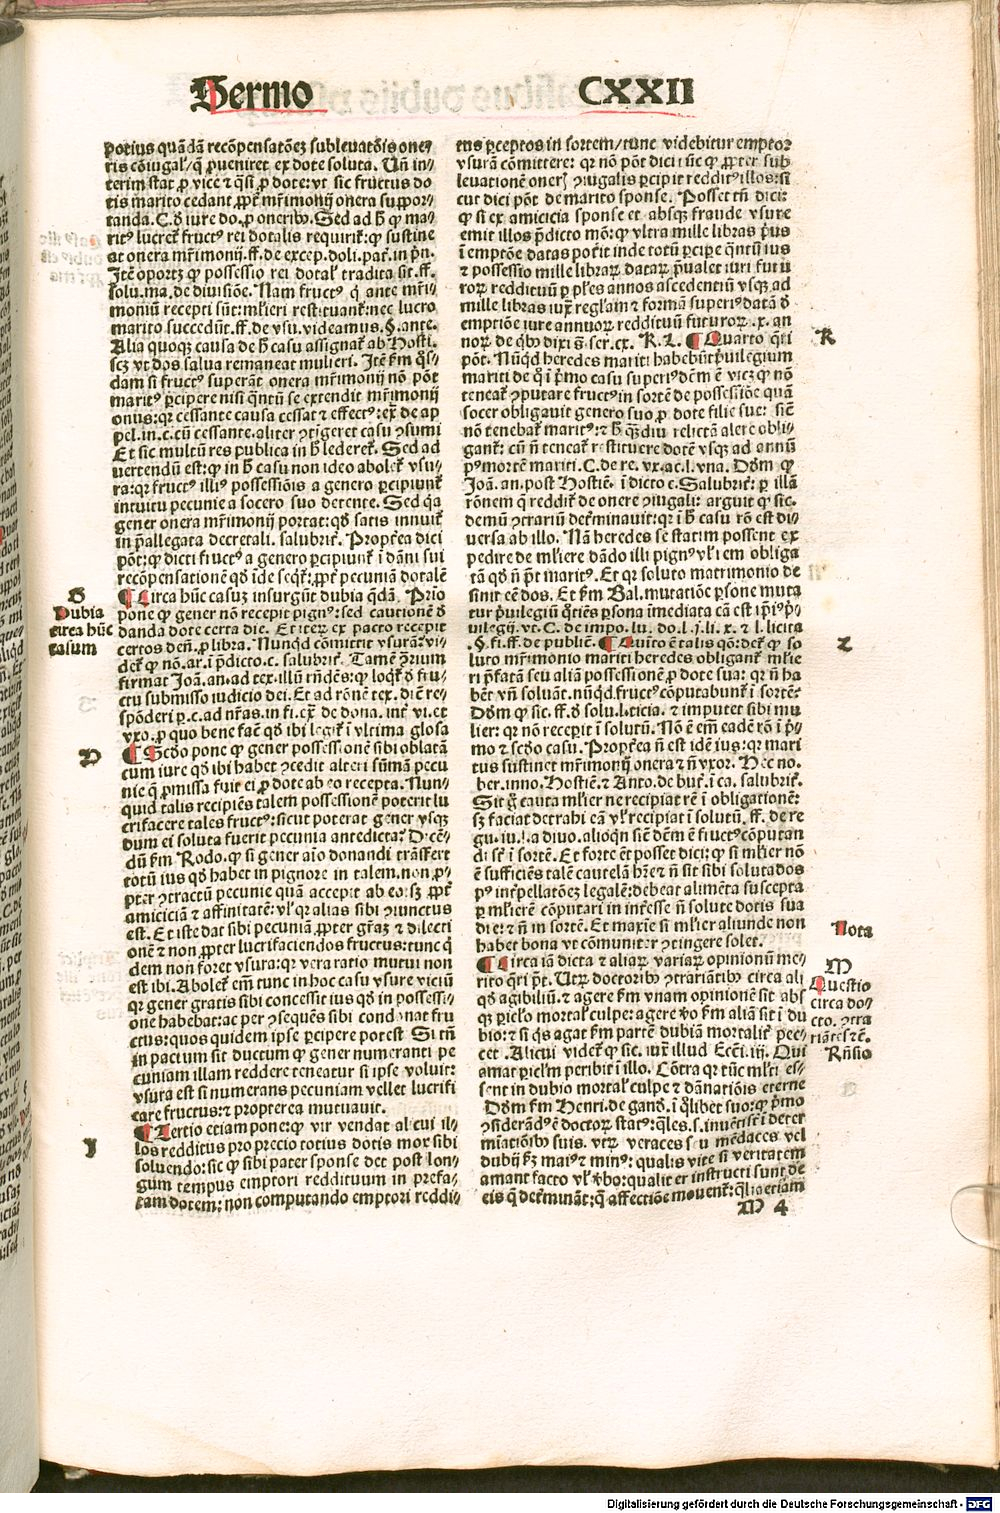 Sermo CXXII
potius quãdã recõpensatõeʒ subleuatõis one⸗
ris cõiugal' q̃ ꝓueniret ex dote soluta. Uñ in⸗
terim stat ꝓ vice ⁊ q̃si ꝓ dote: vt sic fructus do
tis marito cedant ꝓpt̃ mr̃imonij onera suppor⸗
tanda. C. ð iure do. ꝓ oneribꝰ. Sed ad h̃ ꝙ ma⸗
ritꝰ lucret̃ fructꝰ rei dotalis requirit̃: ꝙ sustine
at onera mr̃imonij. ff. de excep. doli. pat̃. in pñ.
Itẽ oportʒ ꝙ possessio rei dotal' tradita sit. ff.
solu. ma. de diuisiõe. Nam fructꝰ q̇ ante mr̃i⸗
moniũ recepti sũt: ml̃ieri restituant̃: nec lucro
marito succedũt. ff. de vsu. videamus. §. ante.
Alia quoqʒ causa de h̃ casu assignat̃ ab Hosti.
scʒ vt dos salua remaneat mulieri. Itẽ km̃ q̃s⸗
dam si fructꝰ superãt onera mr̃imonij nõ põt
maritꝰ ꝑcipere nisi q̃ntũ se extendit mr̃imonij
onus: qr cessante causa cessat ⁊ effectꝰ: ex̃ de ap
pel. in. c. cũ cessante. aliter ꝯtigeret casu ꝯsumi
Et sic multũ res publica in h̃ lederet̃. Sed ad
uertendũ est: ꝙ in h̃ casu non ideo abolet̃ vsu⸗
ra: qr fructꝰ illiꝰ possessiõis a genero ꝑcipiunt̃
intuitu pecunie a socero suo detente. Sed q̇a
gener onera mr̃imonij portat: qð satis innuit̃
in p̃allegata decretali. salubrit̃. Propt̃ea dici
põt: ꝙ dicti fructꝰ a genero ꝑcipiunt̃ i dãni sui
recõpensationẽ qð ĩde seqt̃: ꝓpt̃ pecuniã dotalẽ
¶ Circa hũc casuʒ insurgũt dubia q̃dã. Prĩo
pone ꝙ gener nõ recepit pignꝰ: sed cautionẽ ð
danda dote certa die. Et iteꝝ ex pacto recepit
certos deñ. ꝓ libra. Nunqd cõmittit vsurã: vi⸗
det̃ ꝙ nõ. ar. i p̃dicto. c. salubrit̃. Tamẽ ꝯ̃rium
firmat Joã. an. ad tex. illũ rñdẽs: ꝙ loqt̃ ð fru⸗
ctu submisso iudicio dei. Et ad rõnẽ tex. diẽ re⸗
spõderi ꝑ. c. ad nr̃as. in fi. ex̃ de dona. int̃ vi. ex
vxo. ꝓ quo bene facit qð ibi legit̃ i vltima glosa
¶ Scðo pone ꝙ gener possessionẽ sibi oblatã
cum iure qð ibi habet ꝯcedit alteri sũmã pecu
nie q̃ ꝓmissa fuit ei ꝓ dote ab eo recepta. Nun⸗
quid talis recipiẽs talem possessionẽ poterit lu
crifacere tales fructꝰ: sicut poterat gener vsqʒ
dum ei soluta fuerit pecunia antedicta? Dicẽ⸗
dũ km̃ Rodo. ꝙ si gener aĩo donandi trãsfert
totũ ius qð habet in pignore in talem. non ꝓ⸗
pter ꝯtractũ pecunie quã accepit ab eo: sʒ ꝓpt̃
amiciciã ⁊ affinitatẽ: vl' qr alias sibi ꝯiunctus
est. Et iste dat sibi pecuniã ꝓpter gr̃aʒ ⁊ dilecti
onẽ ⁊ non ꝓpter lucrifaciendos fructus: tunc q̇
dem non foret vsura: qr vera ratio mutui non
est ibi. Abolet̃ em̃ tunc in hoc casu vsure viciũ
qr gener gratis sibi concessit ius qð in possessi⸗
one habebat: ac per ꝯsequẽs sibi condonat fru
ctus: quos quidem ipse ꝑcipere potest. Si tñ
in pactum sit ductum ꝙ gener numeranti pe
cuniam illam reddere teneatur si ipse voluit:
vsura est si numerans pecuniam vellet lucrifi
care fructus: ⁊ propterea mutuauit.
¶ Tertio etiam pone: ꝙ vir vendat alicui il⸗
los redditus pro precio totius dotis mox sibi
soluendo: sic ꝙ sibi pater sponse det post lon⸗
gum tempus emptori reddituum in prefa⸗
tam dotem: non computando emptori reddi⸗
tus ꝑceptos in sortem/ tunc videbitur emptor
vsurã cõmittere: qr nõ põt dici sic ꝙ ꝓpter sub
leuationẽ oneꝝ ꝯiugalis ꝑcipit redditꝰ illos: si
cut dici põt de marito sponse. Posset tñ dici:
ꝙ si ex amicicia sponse et absqʒ fraude vsure
emit illos p̃dicto mõ: ꝙ vltra mille libras prius
i emptõe datas poterit inde totũ ꝑcipe q̃nti ius
⁊ possessio mille libraꝝ dataꝝ p̃ualet iuri futu
roꝝ reddituũ ꝑ ples annos ascedentiũ vsqʒ ad
mille libras iux̃ regl'am ⁊ formã superiꝰ datã ð
emptiõe iure annuoꝝ reddituũ futuroꝝ. x. an
noꝝ de qbꝰ dixi s̃. ser. cx. K. L. ¶ Quarto q̃ri
põt. Nũqd heredes mariti habebũt p̃uilegium
mariti de q̊ i p̃mo casu superiꝰ dẽm ẽ vicʒ ꝙ nõ
teneat̃ ꝯputare fructꝰ in sortẽ de possessiõe quã
socer obligauit genero suo ꝓ dote filie sue: sicñ
nõ tenebat̃ maritꝰ: ⁊ h̃ q̃ʒdiu relictã alere obli⸗
gant̃: cũ ñ teneat̃ restituere dotẽ vsqʒ ad annũ
pꝰ mortẽ mariti. C. de re. vx. ac. l. vna. Dõm ꝙ
Joã. an. post Hostiẽ. i dicto c. Salubrit̃: ꝑ illã
rõnem q̃ reddit̃ de onere ꝯiugali: arguit ꝙ sic.
demũ ꝯtrariũ det̃minauit: qr i h̃ casu rõ est di⸗
uersa ab illo. Nã heredes se statim possent ex
pedire de ml̃iere dãdo illi pignꝰ vl' iem obliga
tã qð ñ p̃t maritꝰ. Et qr soluto matrimonio de
sinit eẽ dos. Et km̃ Bal. mutatiõe ꝑsone muta
tur p̃uilegiũ q̃tiẽs ꝑsona ĩmediata cã est ip̃iꝰ p̃⸗
uilegij. vt. C. de impo. lu. do. l. j. li. x. ⁊ l. licita
.§. fi. ff. de public. ¶ Quĩto ẽ talis qõ: dct̃ ꝙ so
luto mr̃imonio mariti heredes obligant̃ ml̃ie
ri p̃fatã seu aliã possessionẽ ꝓ dote sua: qr ñ ha
bẽt vñ soluãt. nũqd fructꝰ cõputabunt̃ i sortẽ?
Dõm ꝙ sic. ff. ð solu. l. ticia. ⁊ imputet sibi mu
lier: qr nõ recepit i solutũ. Nõ ẽ em̃ eadẽ rõ i p̃⸗
mo ⁊ scðo casu. Propt̃ea ñ est idẽ ius: qr mari
tus sustinet mr̃imonij onera ⁊ ñ vxor. Hec no.
ber. inno. Hostiẽ. ⁊ Anto. de but. i ca. salubrit̃.
Sit g̊ cauta ml̃ier ne recipiat rẽ i obligationẽ:
sʒ faciat detrabi eã vl' recipiat i solutũ. ff. de re
gu. iu. l. a diuo. alioqn siẽ dẽm ẽ fructꝰ cõputan
di st̃ i sortẽ. Et forte et̃ posset dici: ꝙ si ml̃ier nõ
ẽ sufficiẽs talẽ cautelã hr̃e ⁊ ñ sit sibi soluta dos
pꝰ int̃pellatõeʒ legalẽ: debeat alimẽta suscepta
ꝑ ml̃ierẽ cõputari in int̃esse ñ solute dotis sua
die: ⁊ ñ in sortẽ. Et maxĩe si ml̃ier aliunde non
habet bona vt cõmuniter ꝯtingere solet.
¶ Circa iã dicta ⁊ aliaꝝ variaꝝ opinionũ me⸗
rito q̃ri p̃t. Utꝝ doctoribꝰ ꝯtrariãtibꝰ circa ali
qð agibiliũ. ⁊ agere km̃ vnam opinionẽ sit absqʒ
ꝑicl'o mortal' culpe: agere ṽo km̃ aliã sit i du
bio: ⁊ si q̇s agat km̃ partẽ dubiã mortalit̃ pec⸗
cet. Alicui videt̃ ꝙ sic. iux̃ illud Ecci. iij. Qui
amat ꝑicl'm peribit i illo. Cõtra qr tũc ml̃ti es⸗
sent in dubio mortal' culpe ⁊ dãnatiõis eterne
Dõm km̃ Henri. de gand. i q̃libet suo: ꝙ p̃mo
ꝯsiderãdꝰ ẽ doctoꝝ statꝰ: q̃les. s. inuẽti st̃ i deter
mĩatiõibꝰ suis. vtꝝ veraces seu mẽdaces vel
dubij kʒ maiꝰ ⁊ minꝰ: qualis vite si veritatem
amant facto vl' ṽbo: qualiter instructi sunt de
eis q̃ det̃minãt: q̃ affectiõe mouent̃: q̃lia etiam
M 4
G
Dubia
circa hũc
casum
H
I
K
L
Nota
M
Questio
circa do⸗
cto. ꝯtra
riãtes ⁊ c̃.
Rñsio
Digitalisierung gefördert durch die Deutsche Forschungsgemeinschaft - DFG